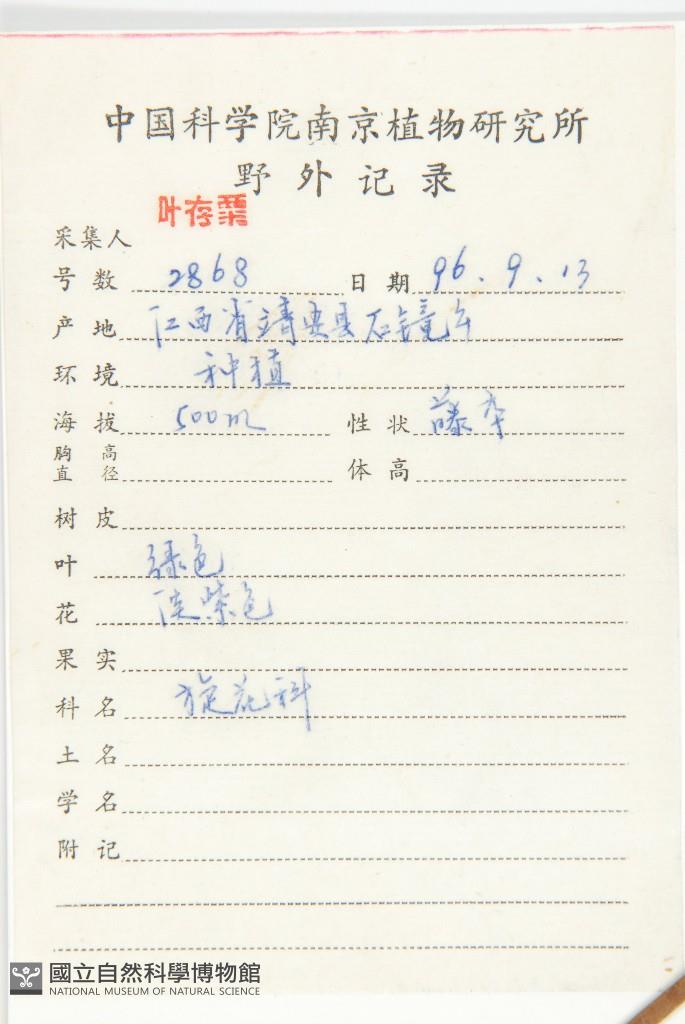 中国科学院南京植物研究所
野外记录
叶存粟
采集人
号数 2868 日期 96.9.13
产地 江西省靖安县石镜乡
环境 种植
海拔 500m 性状 藤本
胸高直径 体高
树皮
叶 绿色
花 淡紫色
果实
科名 旋花科
土名
学名
附记
國立自然科學博物館
NATIONAL MUSEUM OF NATURAL SCIENCE